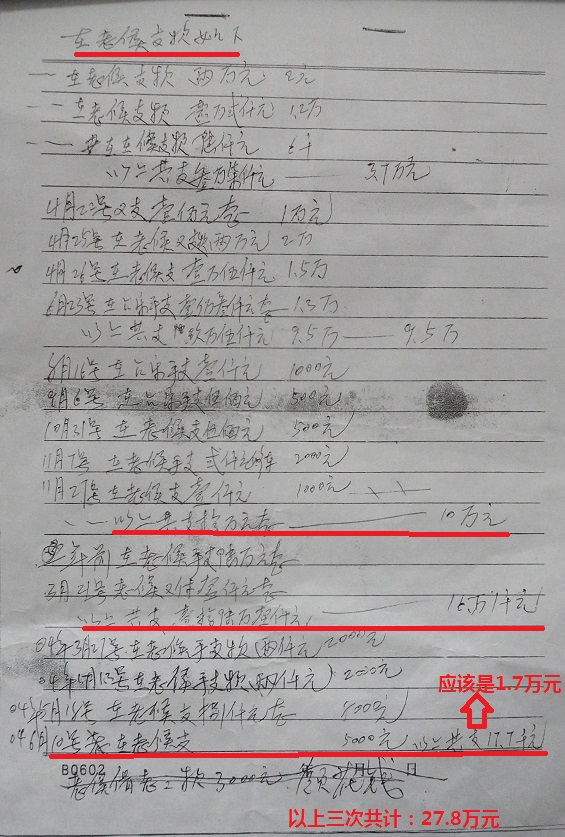 在老候支款如下
一 在老候支款 两万元 2元
一 在老候支款 壹万弍仟元 1.2万
一 在老候支款 伍仟元
以上共支叁万柒仟元 —— 3.7万元
4月22号又支壹万元 1万元
4月25号在老候又支两万元 2万
4月26号在老候支壹万伍仟元 1.5万
6月23号在 手支壹万叁仟元 1.3万
以上共支 玖万伍仟元 9.5万 —— 9.5万
8月16号在 手支壹仟元 1000元
9月6号在 手支伍佰元 500元
10月31号在老候支伍佰元 500元
11月7号在老候手支弍仟元 2000元
11月27号在老候支壹仟元 1000元
以上共支拾万元 —— 10万元
年前在老候手支陆万元
3月21号老候又付壹仟元
以上共支 拾陆万壹仟元 —— 16万1仟元
04年3月27号在老候手支款(两仟元) 2000元
04年4月13号在老候手支款(两仟元) 2000元
04年5月18号在老候支捌仟元 8000元
04 6月10号 在老候支 5000元 以上共支17.7仟元
应该是1.7万元
B0602 月 日
老候借老 款3000元
以上三次共计：27.8万元